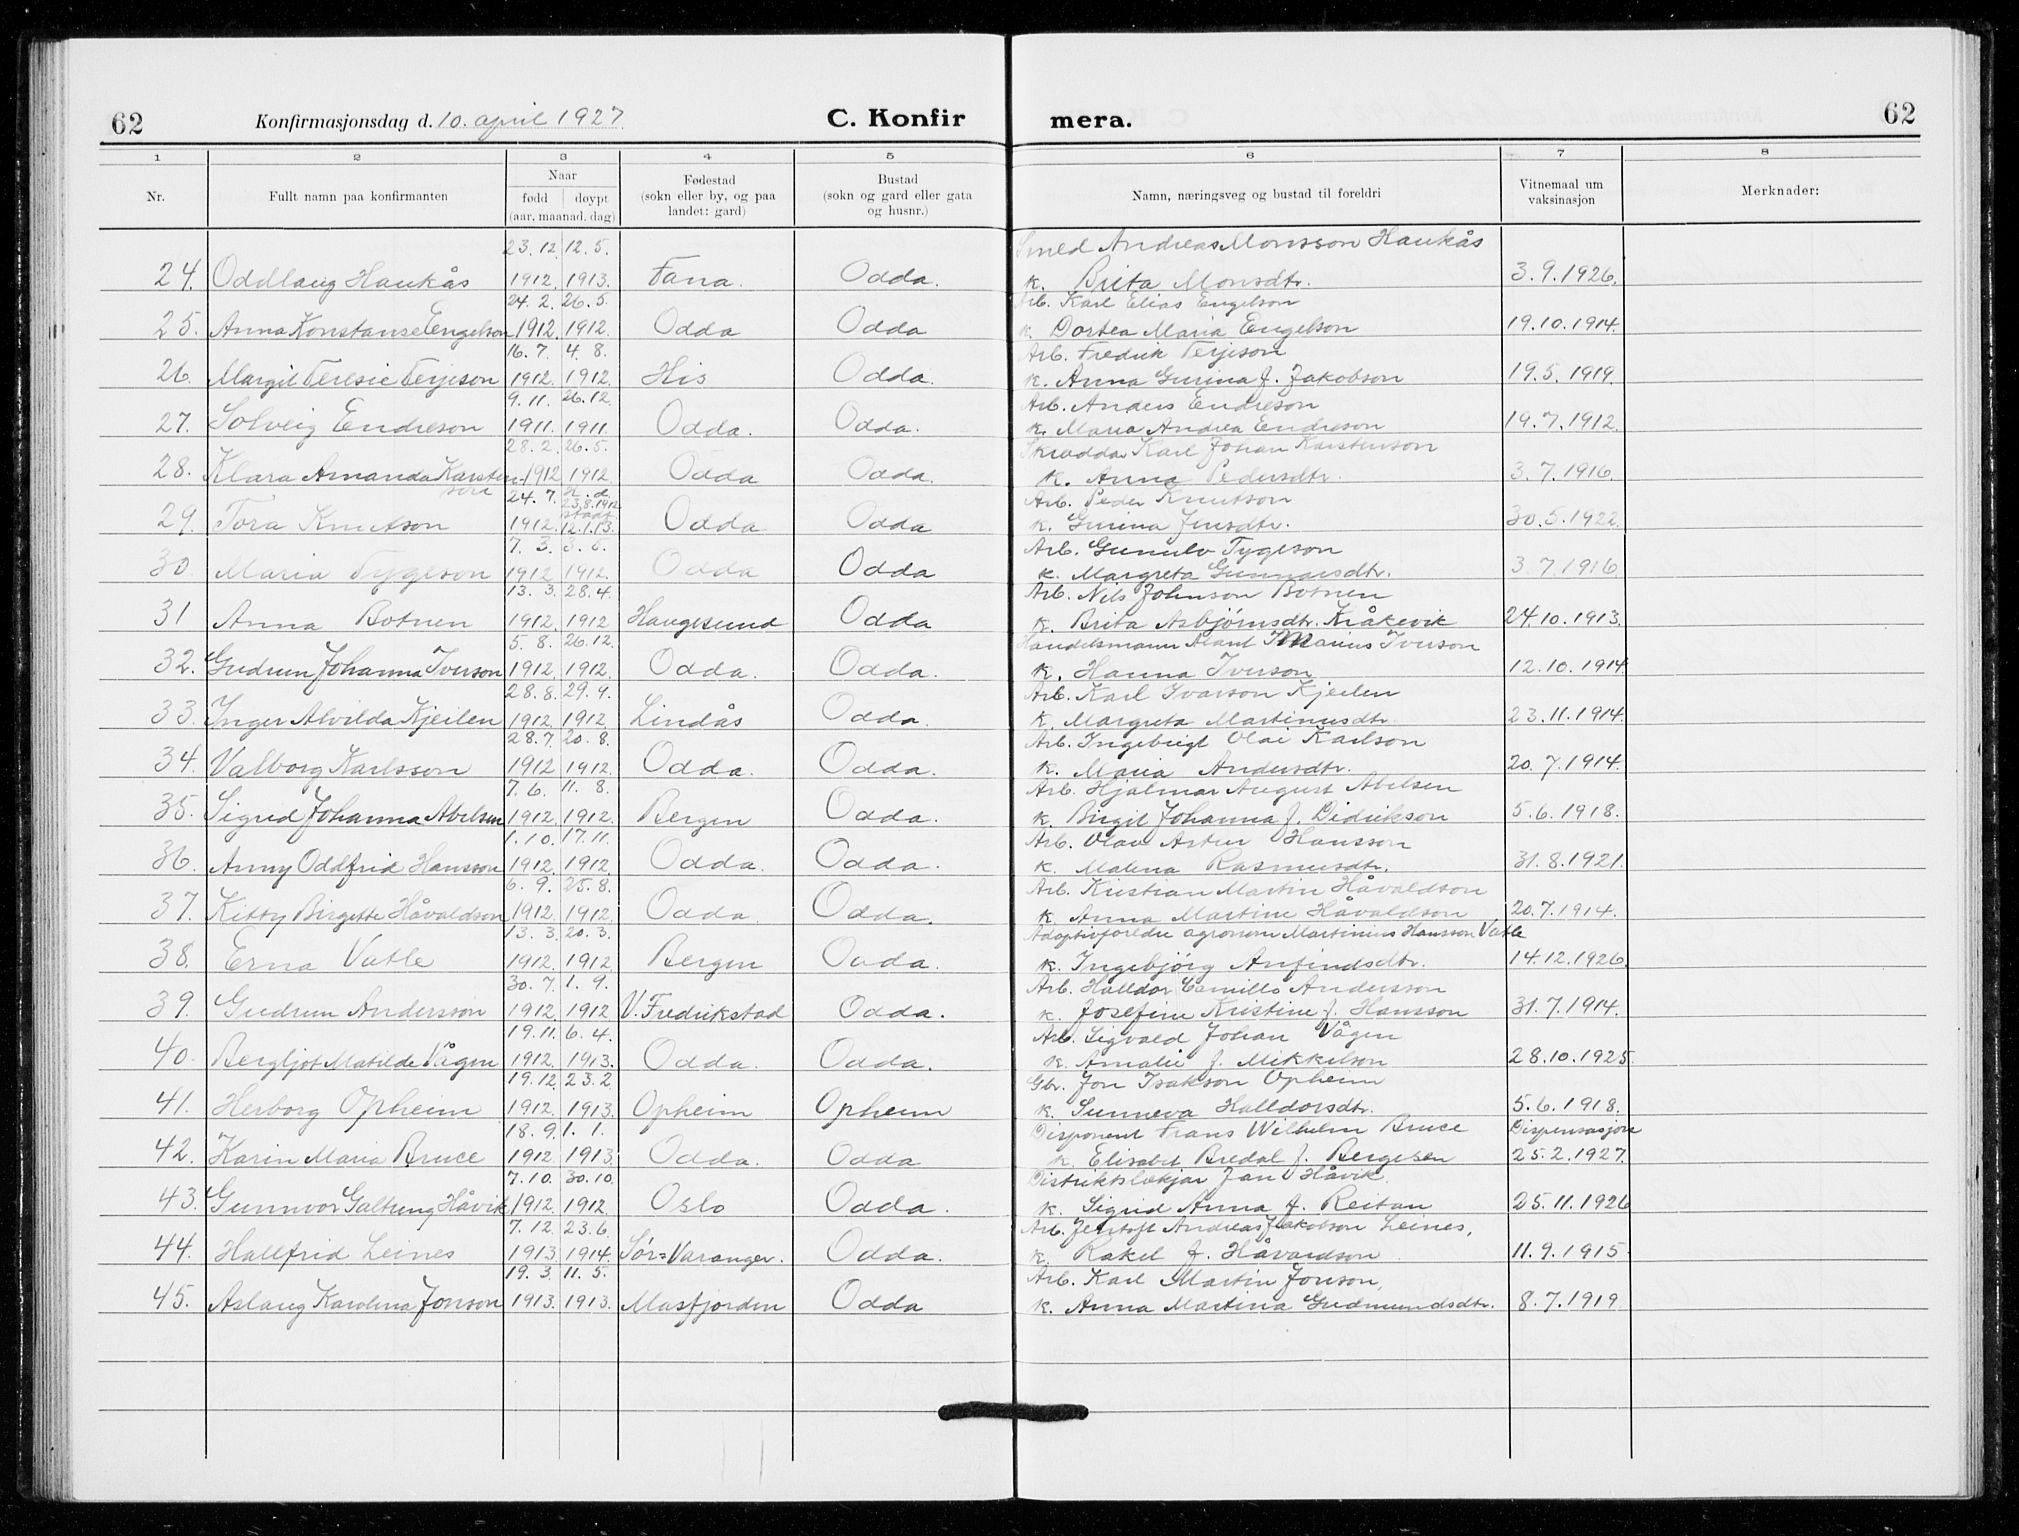 62 Konfirmasjonsdag d. 10. april 1927. C. Konfir mera. 62
1 2 3 4 5 6 7 8
Nr. Fullt namn paa konfirmanten Naar Fødestad Bustad Namn, næringsveg og bustad til foreldri Vitnemaal um Merknader:
fødd døypt (sokn eller by, og paa (sokn og gard eller gata vaksinasjon
(aar, maanad, dag) landet: gard) og husnr.)
23.12. 12.5. Smed Andreas Monsson Haukås
24. Oddlaug Haukås 1912. 1913. Fana. Odda. k. Brita Monsdtr. 3.9.1926.
24.2. 26.5. Arb. Karl Elias Engelson
25. Anna Konstanse Engelson 1912. 1912. Odda Odda k. Dortea Maria Engelson 19.10.1914.
16.7. 4.8. Arb. Fredrik Terjeson
26. Margit Teresie Terjeson 1912. 1912. His Odda. k. Anna Gurina f. Jakobson 19.5.1919.
9.11. 26.12. Arb. Anders Endreson
27. Solveig Endreson 1911. 1911. Odda. Odda. k. Maria Andrea Endreson 19.7.1912.
28.2. 26.5. Skraddar Karl Johan Karstenson
28. Klara Amanda Karsten- 1912. 1912. Odda Odda. k. Anna Pedersdtr. 3.7.1916.
son 24.7. h.d. 23.8.1912 Arb. Peder Knutson
29. Tora Knutson 1912. stadf. 12.1.13. Odda Odda k. Gurina Jensdtr. 30.5.1922.
7.3. 3.5. Arb. Gunulv Tygeson
30 Maria Tygeson 1912 1912. Odda Odda k. Margreta Gunnarsdtr. 3.7.1916.
13.3. 28.4. Arb. Nils Johnson Botnen
31 Anna Botnen 1912. 1912 Haugesund Odda k. Brita Asbjørnsdtr. Kråkevik 24.10.1913.
5.8. 26.12. Handelsmann Marius Iverson
32. Gudrun Johanna Iverson 1912. 1912. Odda. Odda. k. Hanna Iverson 12.10.1914.
28.8. 29.9. Arb. Karl Ivarson Kjeilen
33. Inger Alvilda Kjeilen 1912. 1912. Lindås Odda. k. Margreta Martinusdtr. 23.11.1914.
28.7. 20.8. Arb. Ingebrigt Olai Karlson
34. Valborg Karlsson 1912 1912. Odda. Odda. k. Maria Andersdtr. 20.7.1914.
7.6. 11.8. Arb. Hjalmar August Abelsen
35. Sigrid Johanna Abelsen 1912. 1912. Bergen Odda. k. Birgit Johanna f. Didrikson 5.6.1918.
1.10. 17.11. Arb. Olav Artur Hansson
36. Anny Oddfrid Hansson 1912. 1912 Odda. Odda. k. Malena Rasmusdtr. 31.8.1921.
6.9. 25.8. Arb. Kristian Martin Håvaldson
37. Kitty Birgette Håvaldson 1912. 1912. Odda. Odda. k. Anna Martine Håvaldson 20.7.1914.
13.3. 20.3. Adoptivforeldre agronom Martinius Hansson Vatle
38. Erna Vatle 1912. 1912. Bergen Odda. k. Ingebjørg Anfindsdtr. 14.12.1926.
30.7. 1.9. Arb. Halldor Camillo Andersson
39. Gudrun Andersson 1912. 1912 V. Fredrikstad Odda. k. Josefine Kristine f. Hansson 31.7.1914.
19.11. 6.4. Arb. Sigvald Johan Vågen
40. Bergljot Matilde Vågen 1912. 1913. Odda. Odda. k. Amalie f. Mikkelson 28.10.1925.
19.12. 23.2. Gbr. Jon Isakson Opheim
41. Herborg Opheim 1912. 1913. Opheim Opheim k. Sunneva Halldorsdtr. 5.6.1918.
18.9. 1.1. Disponent Frans Wilhelm Bruce Dispensasjon
42. Karin Maria Bruce 1912. 1913. Odda. Odda k. Elisabet Bredal f. Bergesen 25.2.1927.
7.10. 30.10. Distriktslækjar Jan Håvik.
43. Gunnvor Galtung Håvik 1912. 1912. Oslo Odda. k. Sigrid Anna f. Reitan 25.11.1926
7.12. 23.6. Arb. Jentoft Andreas Jakobson Leines,
44. Hallfrid Leines 1913. 1914. Sør=Varanger. Odda. k. Rakel f. Håvardson 11.9.1915.
19.3. 11.5. Arb. Karl Martin Jonson,
45. Aslaug Karolina Jonson 1913. 1913. Masfjorden Odda k. Anna Martina Gudmundsdtr. 8.7.1919.